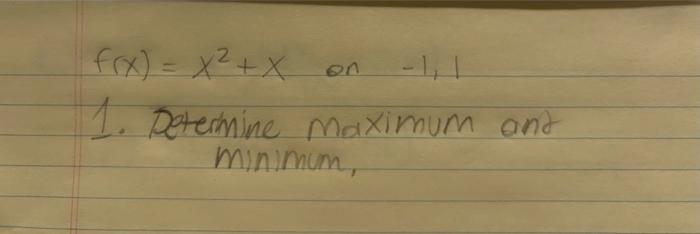 f(x) = x² + x on -1, 1
1. Determine maximum and
minimum,